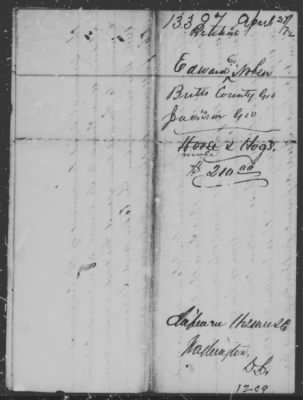 13397 April 27/72
Petition
Edward G Nolen
Butts County Geo
Jackson Geo
Horse & Hogs.
mule
$ 210 00
Chipman Hosmer & Co
Washington
D.C.
12-29